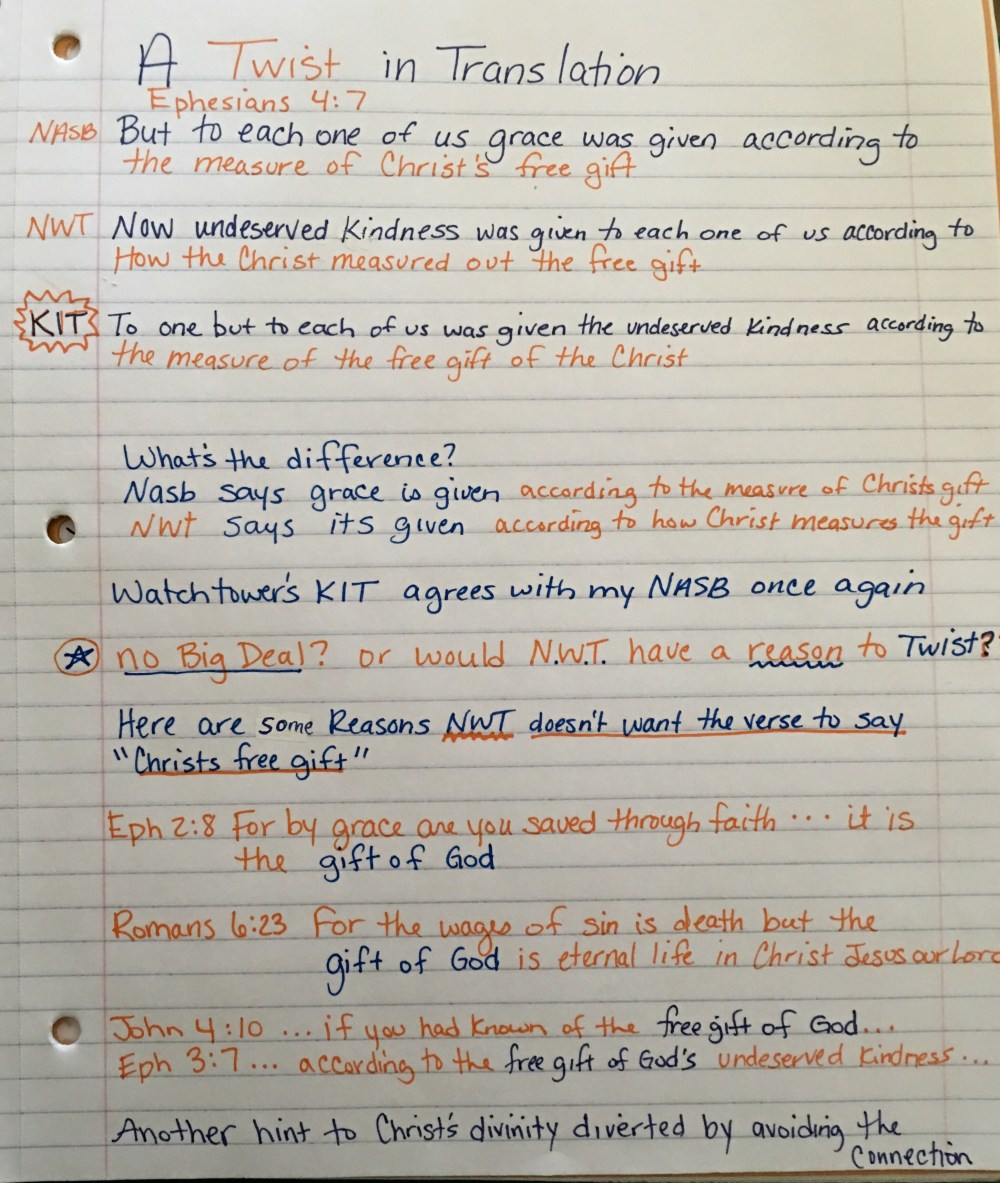 A Twist in Translation
Ephesians 4:7
NASB But to each one of us grace was given according to
the measure of Christ's free gift
NWT Now undeserved kindness was given to each one of us according to
How the Christ measured out the free gift
KIT To one but to each of us was given the undeserved kindness according to
the measure of the free gift of the Christ
What's the difference?
Nasb says grace is given according to the measure of Christs gift
NWT says its given according to how Christ measures the gift
Watchtower's KIT agrees with my NASB once again
☆ no Big Deal? or would N.W.T. have a reason to Twist?
Here are some Reasons NWT doesn't want the verse to say
"Christs free gift"
Eph 2:8 For by grace are you saved through faith ... it is
the gift of God
Romans 6:23 For the wages of sin is death but the
gift of God is eternal life in Christ Jesus our Lord
John 4:10 ... if you had known of the free gift of God...
Eph 3:7... according to the free gift of God's undeserved kindness...
Another hint to Christ's divinity diverted by avoiding the
Connection